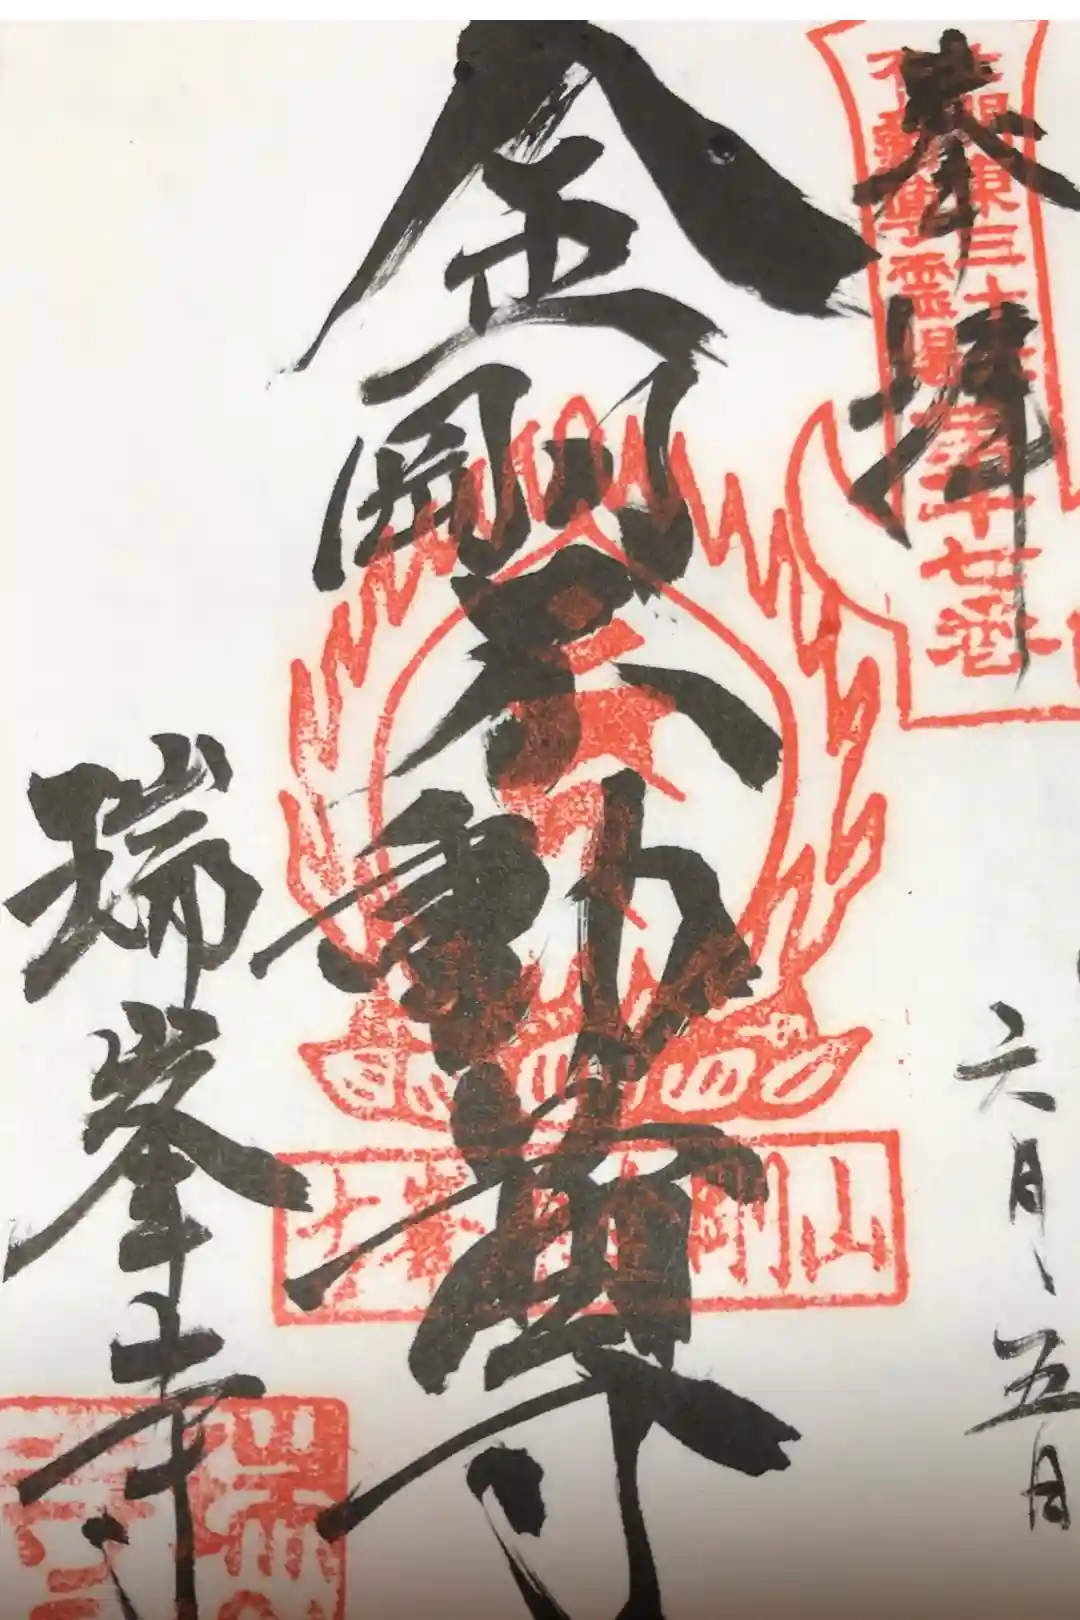 奉拝
北関東三十六
不動尊霊場
第十七番
六月五日
金剛不動尊
剛山
瑞峯寺